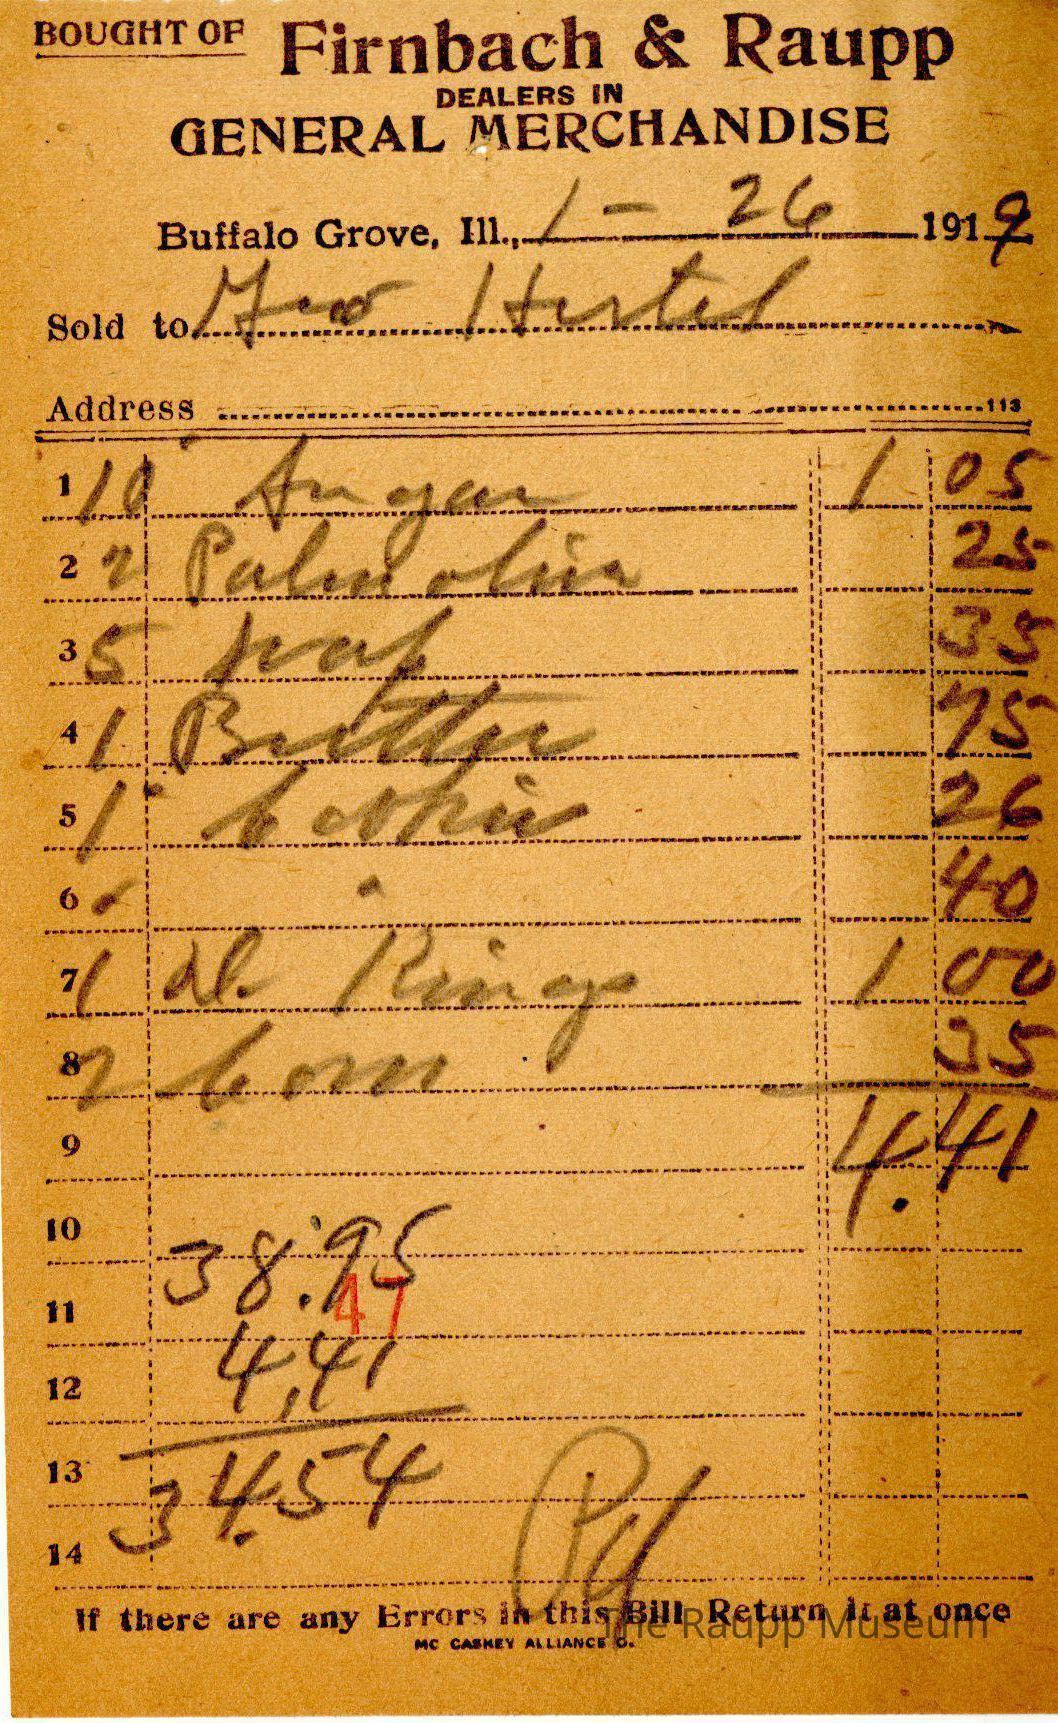 BOUGHT OF Firnbach & Raupp
DEALERS IN
GENERAL MERCHANDISE
Buffalo Grove, Ill., 1 - 26 1919
Sold to Geo Hertel
Address 113
1 10 Sugar 1 05
2 2 Palmolive 25
3 5 soap 35
4 1 Butter 75
5 1 Cookies 26
6 " " 40
7 1 Kings 1 00
8 2 Corn 35
9 4.41
10 38.95
11 47
12 4.41
13 34.54
14 Pd
If there are any Errors in this Bill Return it at once
MC CASKEY ALLIANCE O.
The Raupp Museum